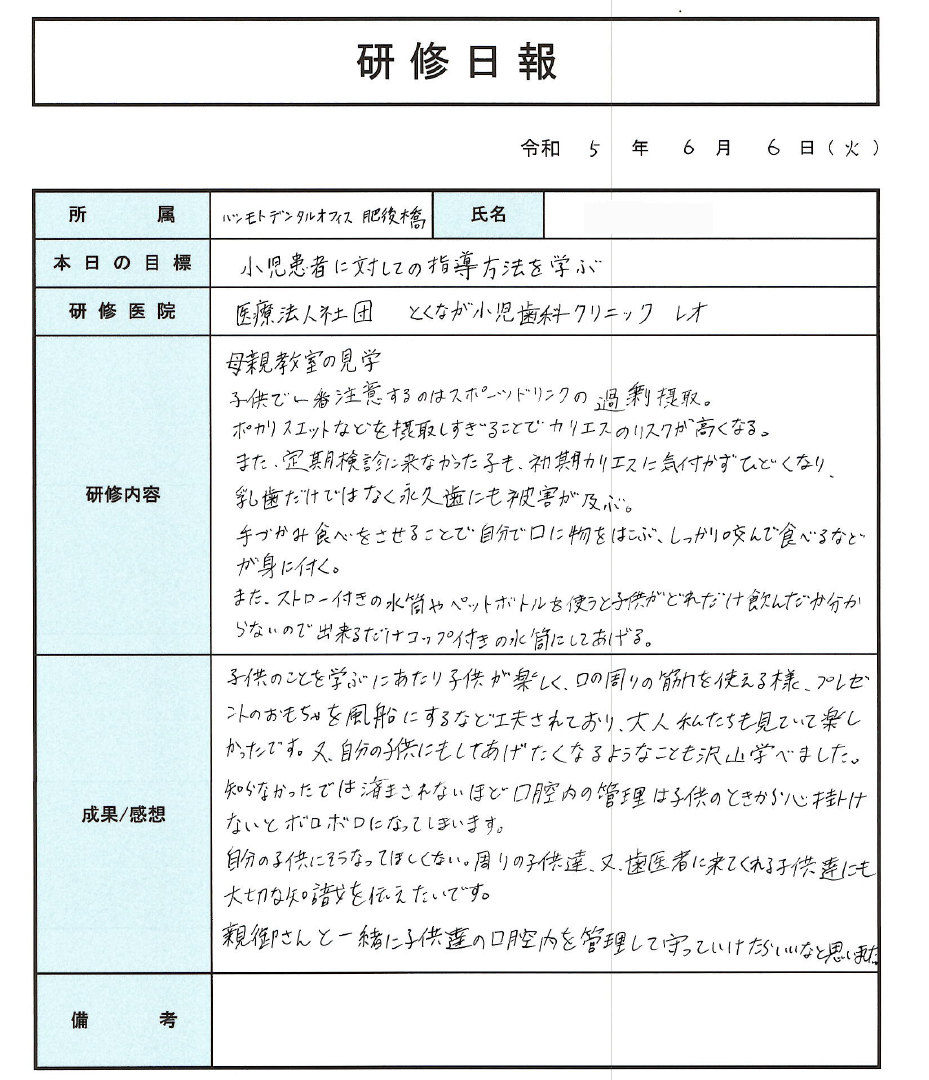 研修日報
令和 5 年 6 月 6 日(火)
所属 ハシモトデンタルオフィス 肥後橋 氏名
本日の目標 小児患者に対しての指導方法を学ぶ
研修医院 医療法人社団 とくなが小児歯科クリニック レオ
研修内容
母親教室の見学
子供で一番注意するのはスポーツドリンクの過剰摂取。
ポカリスエットなどを摂取しすぎることでカリエスのリスクが高くなる。
また、定期検診に来なかった子も、初期カリエスに気付かずひどくなり、
乳歯だけではなく永久歯にも被害が及ぶ。
手づかみ食べをさせることで自分で口に物をはこぶ、しっかり咬んで食べるなど
が身に付く。
また、ストロー付きの水筒やペットボトルを使うと子供がどれだけ飲んだか分か
らないので出来るだけコップ付きの水筒にしてあげる。
成果/感想
子供のことを学ぶにあたり子供が楽しく、口の周りの筋肉を使える様、プレゼ
ントのおもちゃを風船にするなど工夫されており、大人私たちも見ていて楽し
かったです。又、自分の子供にもしてあげたくなるようなことも沢山学べました。
知らなかったでは済まされないほど口腔内の管理は子供のときから心掛け
ないとボロボロになってしまいます。
自分の子供にそうなってほしくない。周りの子供達、又、歯医者に来てくれる子供達にも
大切な知識を伝えたいです。
親御さんと一緒に子供達の口腔内を管理して守っていけたらいいなと思いました
備考